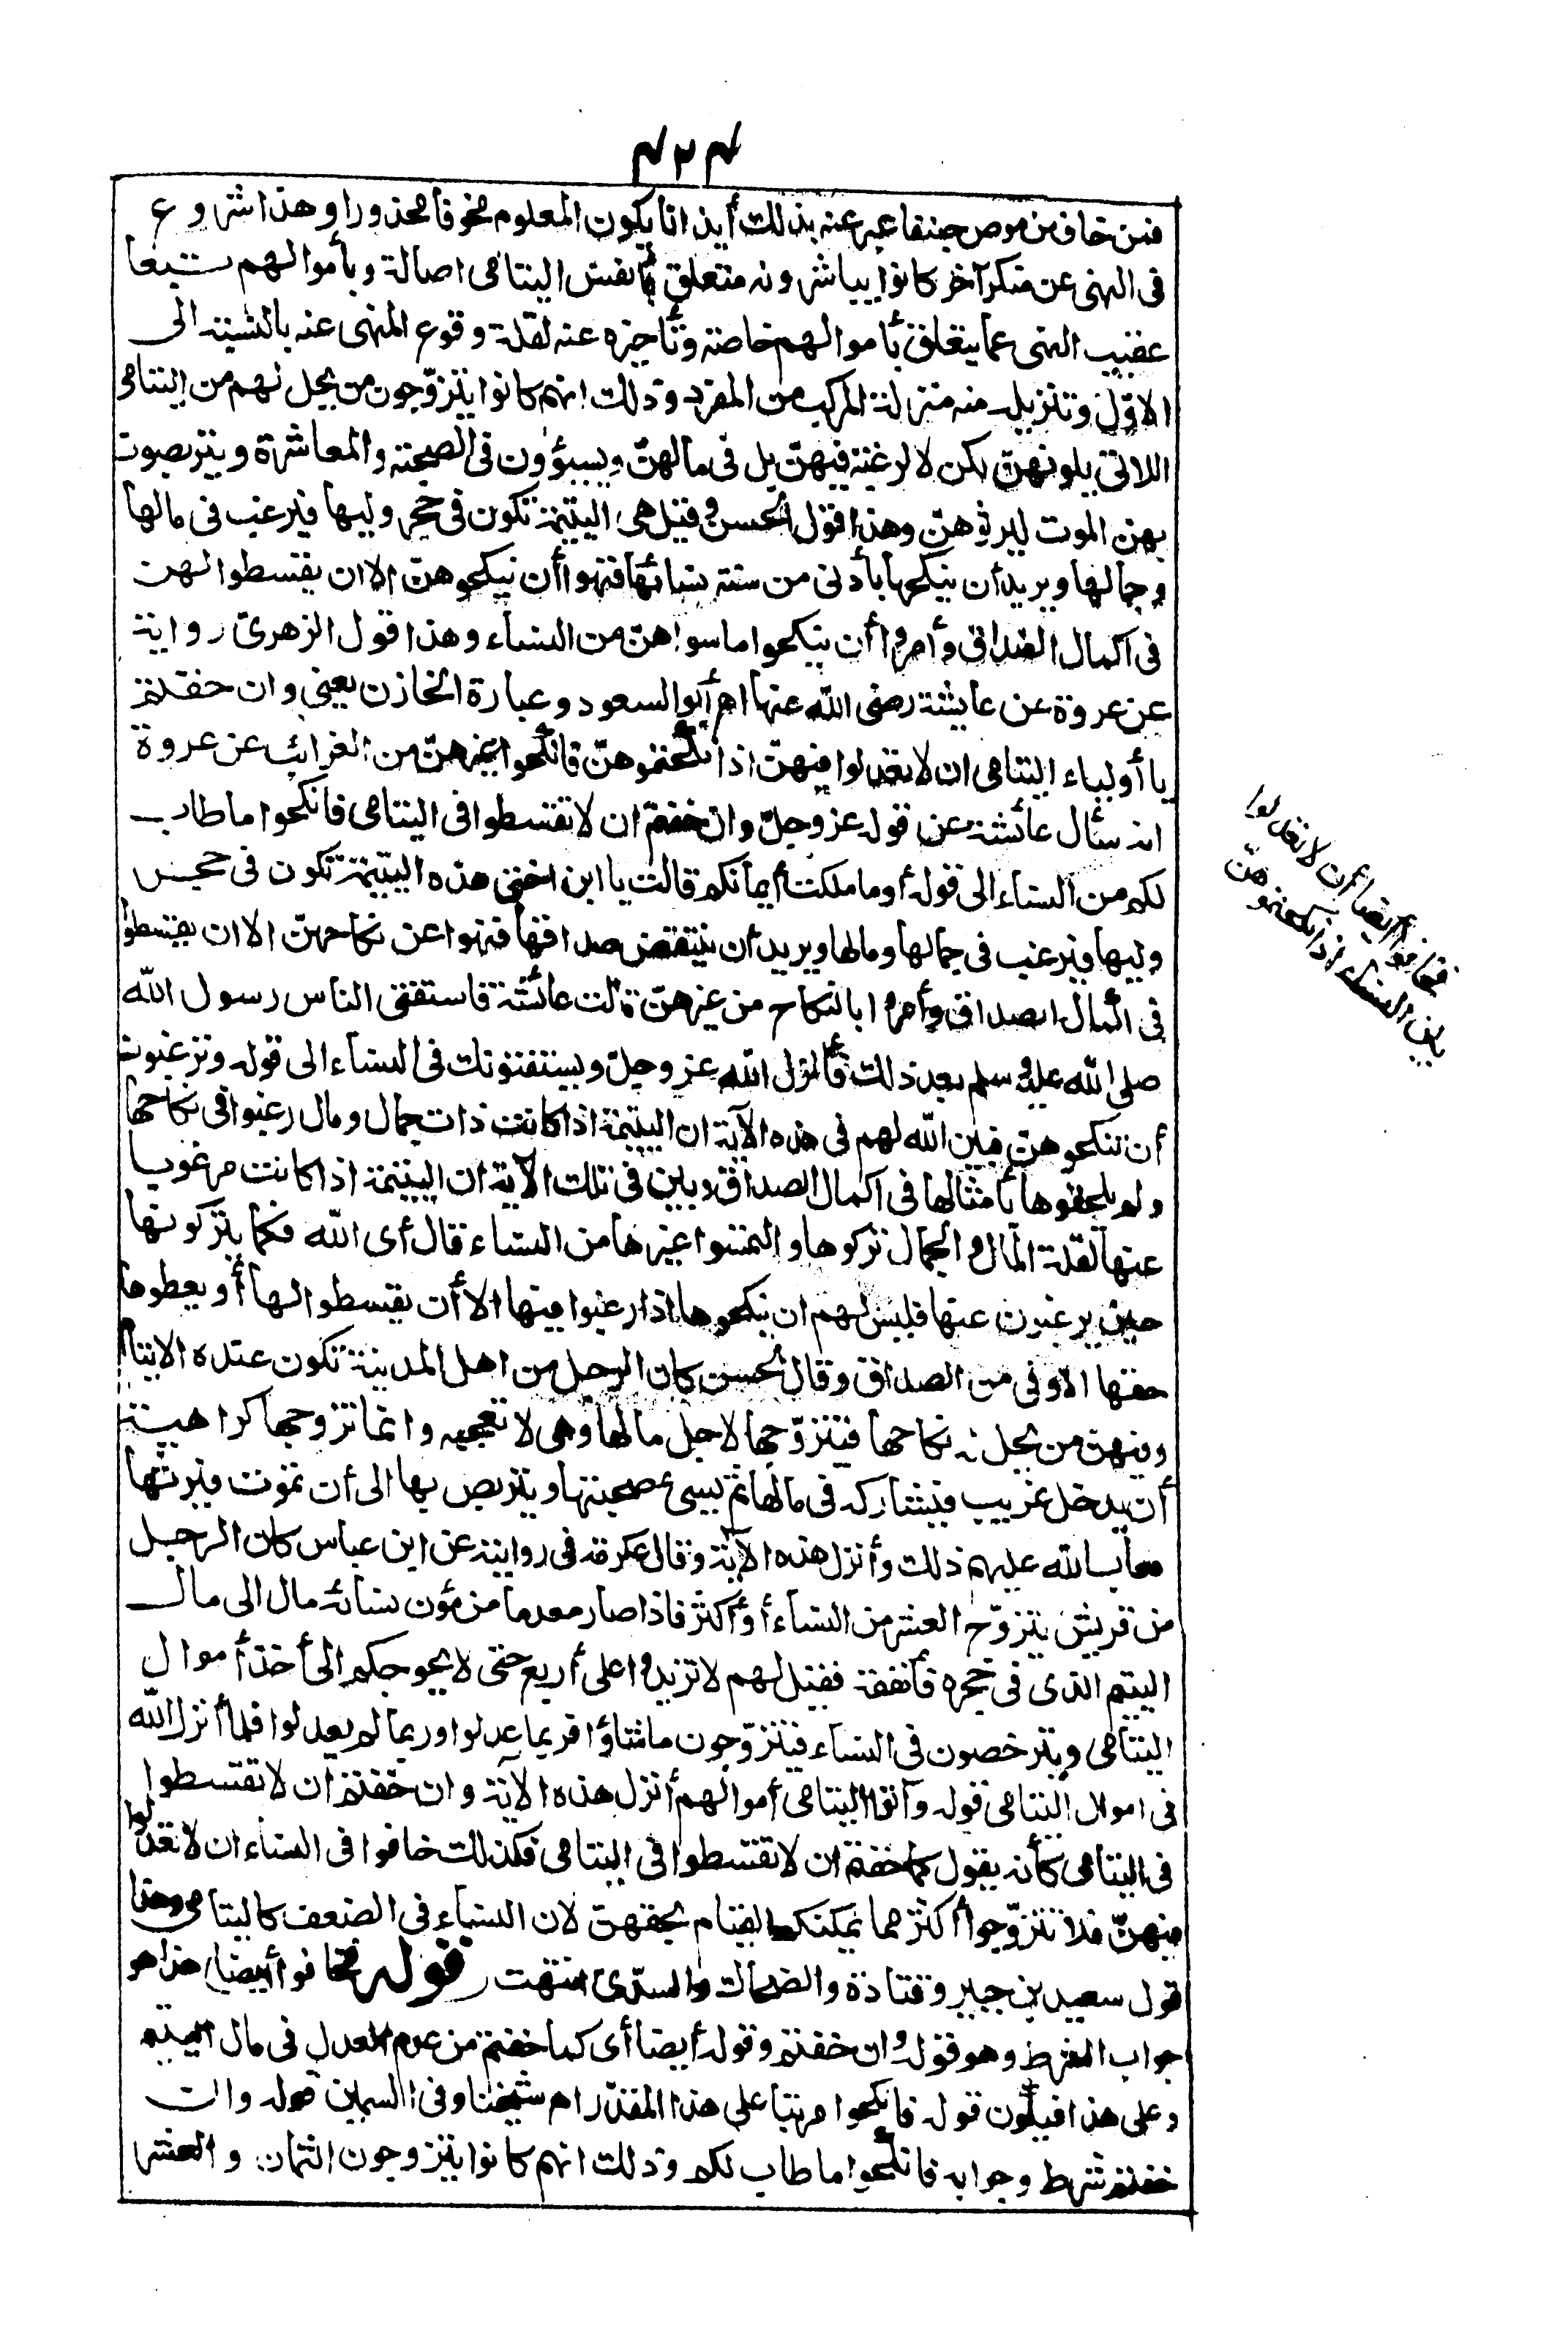 ٤٢٤
فمن خاف من موص جنفا عبر عنه بذلك أيذانا بكون المعلوم مخوفا محذورا وهذا شروع
فى النهى عن منكر آخر كانوا يباشرونه متعلق بأنفس اليتامى اصالة وبأموالهم تبعا
عقيب النهى عما يتعلق بأموالهم خاصة وتأخيره عنه لقلة وقوع المنهى عنه بالنسبة الى
الاوّل وتنزيله منه منزلة المركب من المفرد وذلك انهم كانوا يتزوّجون من يحل لهم من اليتامى
اللاتى يلونهنّ لكن لا لرغبة فيهنّ بل فى مالهنّ ويسيؤون فى الصحبة والمعاشرة ويتربصون
بهنّ الموت ليرثوهنّ وهذا قول الحسن وقيل هى اليتيمة تكون فى حجر وليها فيرغب فى مالها
وجمالها ويريد أن ينكحها بأدنى من سنة نسائها فنهوا أن ينكحوهنّ الا ان يقسطوا لهن
فى اكمال الصداق وأمروا أن ينكحوا ما سواهنّ من النساء وهذا قول الزهرىّ رواية
عن عروة عن عايشة رضى الله عنها اه أبو السعود وعبارة الخازن يعنى وان خفتم
يا أولياء اليتامى ان لا تعدلوا فيهنّ اذا نكحتموهنّ فانكحوا غيرهنّ من الغرائب عن عروة
انه سأل عائشة عن قوله عز وجلّ وان خفتم ان لا تقسطوا فى اليتامى فانكحوا ما طاب
لكم من النساء الى قوله أو ما ملكت أيمانكم قالت يا ابن اختى هذه اليتيمة تكون فى حجر
وليها فيرغب فى جمالها ومالها ويريد أن ينتقص صداقها فنهوا عن نكاحهنّ الا ان يقسطوا
فى اكمال الصداق وأمروا بالنكاح من غيرهنّ قالت عائشة فاستفتى الناس رسول الله
صلى الله عليه وسلم بعد ذلك فأنزل الله عز وجلّ ويستفتونك فى النساء الى قوله وترغبون
أن تنكحوهنّ فبين الله لهم فى هذه الآية ان اليتيمة اذا كانت ذات جمال ومال رغبوا فى نكاحها
ولم يلحقوها بأمثالها فى اكمال الصداق وبين فى تلك الآية ان اليتيمة اذا كانت مرغوبا
عنها لقلة المال والجمال تركوها والتمسوا غيرها من النساء قال أى الله فكما يتركونها
حين يرغبون عنها فليس لهم ان ينكحوها اذا رغبوا فيها الا أن يقسطوا لها أو يعطوها
حقها الاوفى من الصداق وقال الحسن كان الرجل من اهل المدينة تكون عنده الايتام
وفيهنّ من يحل له نكاحها فيتزوّجها لاجل مالها وهى لا تعجبه وانما تزوجها كراهية
أن يدخل غريب فيشاركه فى مالها ثم يسىء صحبتها ويتربص بها الى أن تموت فيرثها
فعاب الله عليهم ذلك وأنزل هذه الآية وقال عكرمة فى رواية عن ابن عباس كان الرجل
من قريش يتزوّج العشر من النساء أو أكثر فاذا صار معدما من مؤن نسائه مال الى مال
اليتيم الذى فى حجره فأنفقه فقيل لهم لا تزيدوا على أربع حتى لا يحوجكم الى أخذ أموال
اليتامى ويترخصون فى النساء فيتزوّجون ما شاؤا فربما عدلوا وربما لم يعدلوا فلما أنزل الله
فى اموال اليتامى قوله وآتوا اليتامى أموالهم أنزل هذه الآية وان خفتم ان لا تقسطوا
فى اليتامى كأنه يقول كما خفتم ان لا تقسطوا فى اليتامى فكذلك خافوا فى النساء ان لا تعدلوا
فيهنّ فلا تتزوّجوا أكثر مما يمكنكم القيام بحقهن لان النساء فى الضعف كاليتامى وهذا
قول سعيد بن جبير وقتادة والضحاك والسدّى انتهت قوله فخافوا أيضا) هذا هو
جواب الشرط وهو قوله وان خفتم وقوله أيضا أى كما خفتم من عدم العدل فى مال اليتيم
وعلى هذا فيكون قوله فانكحوا مرتبا على هذا المقدّر اه شيخنا وفى السمين قوله وان
خفتم شرط وجوابه فانكحوا ما طاب لكم وذلك انهم كانوا يتزوجون الثمان والعشر
فخافوا أيضا أن لا تعدلوا
بين النساء اذا نكحتموهنّ